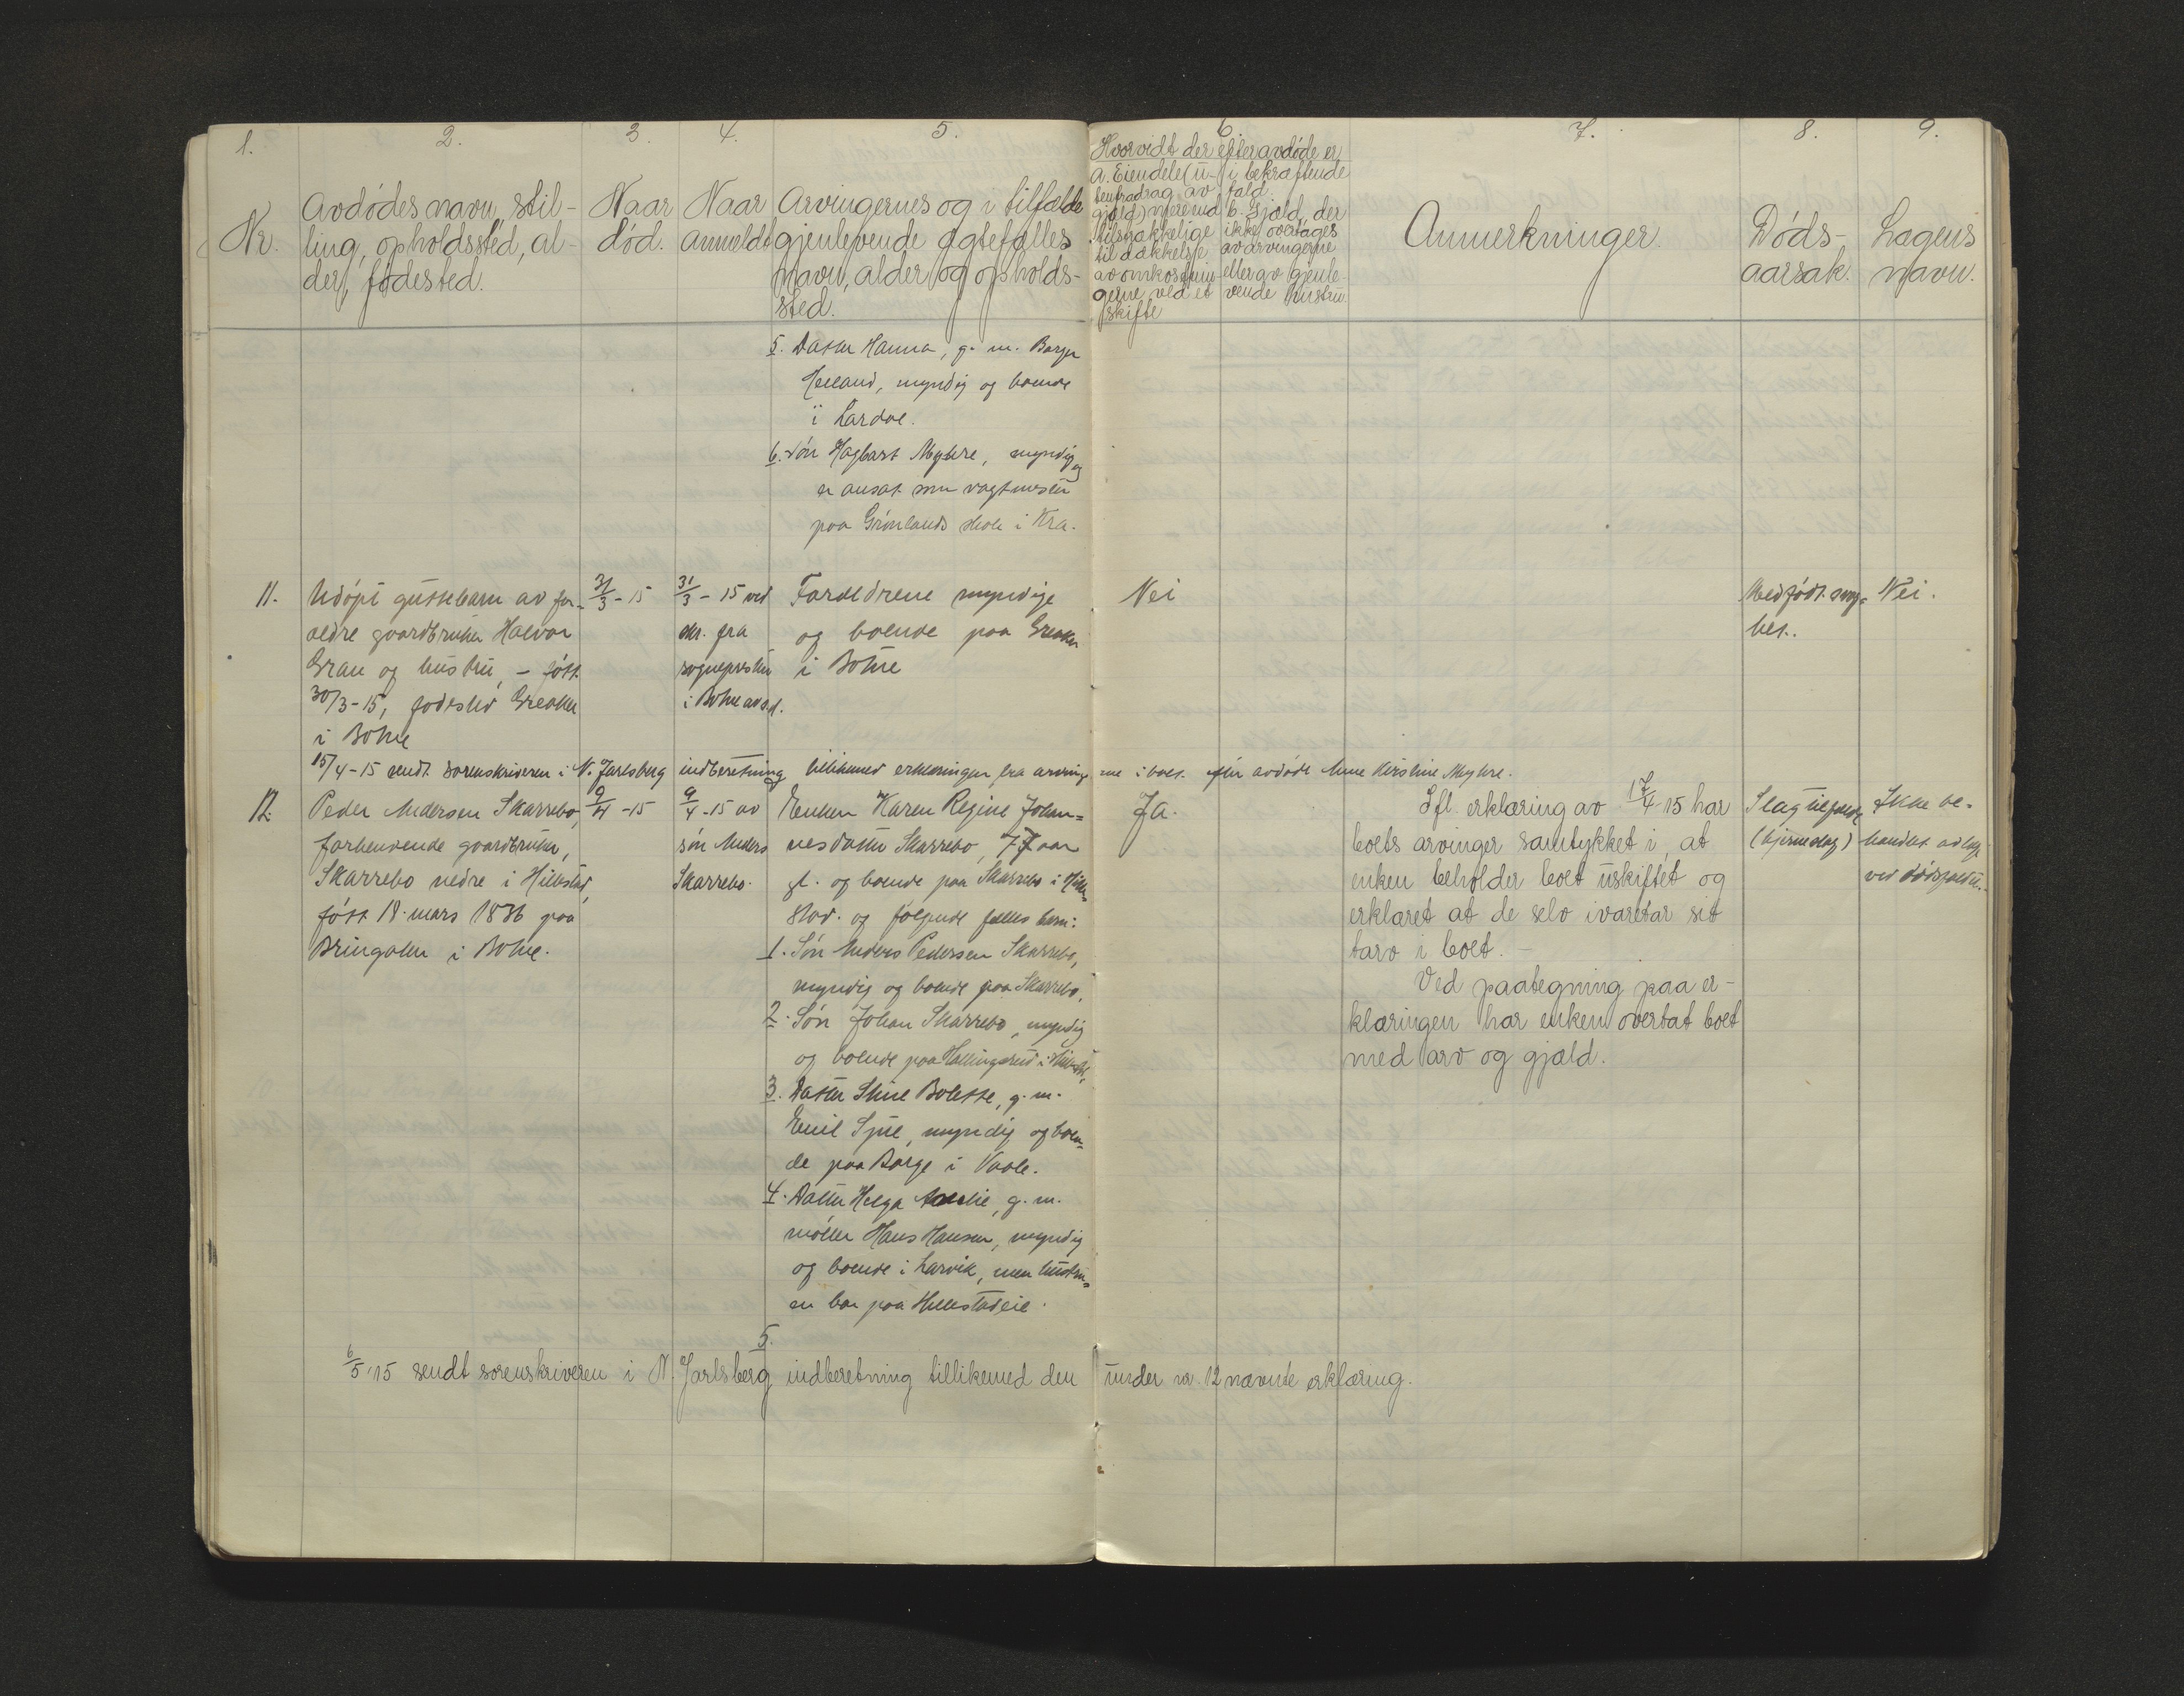 1. 2. 3. 4. 5. 6. 7. 8. 9.
Nr.
Avdödes navn, stil-
ling, opholdssted, al-
der, födested.
Naar
död.
Naar
anmeldt
Arvingernes og i tilfælde
gjenlevende ægtefælles
navn, alder og opholds-
sted.
Hvorvidt der efter avdöde er
a. Eiendele (u-
ten fradrag av
gjæld) mere end
tilstrækkelige
til dækkelse
av omkostnin-
gerne ved et
skifte
i bekræftende
fald.
b. Gjæld, der
ikke overtages
av arvingerne
eller av gjenle-
vende hustru
Anmerkninger.
Döds-
aarsak.
Lægens
navn.
5. Datter Hanna, g. m. Borger
Helland, myndig og boende
i Lardal.
6. Sön Hagbart Myhre, myndig og
er ansat som vagtmester
paa Grönlands skole i Kra.
11.
Udöpt guttebarn av for-
ældre gaardbruker Halvor
Grau og hustru, - födt
30/3-15, fødested Greaker
i Botne
31/3 - 15
31/3 - 15 ved
skr. fra
sognepresten
i Botne av s.d.
Forældrene myndige
og boende paa Greaker
i Botne
Nei
Medfödt svag-
het.
Nei.
15/4-15 sendt sorenskriveren i N. Jarlsberg indberetning tillikemed erklæringen fra arvingerne i boet efter avdöde Anne Kirstine Myhre.
12.
Peder Andersen Skarrebo,
forhenværende gaardbruker,
Skarrebo nedre i Hillestad,
födt 18. mars 1836 paa
Bringaker i Botne.
9/4 -15
9/4 -15 av
sön Anders
Skarrebo.
Enken Karen Regine Johan-
nesdatter Skarrebo, 77 aar
gl. og boende paa Skarrebo i Hille-
stad. og følgende fælles barn:
1. Sön Anders Pedersen Skarrebo,
myndig og boende paa Skarrebo,
2. Sön Johan Skarrebo, myndig
og boende paa Hallingsrud i Hillestad,
3. Datter Stine Bolette, g. m.
Emil Sjue, myndig og boen-
de paa Borge i Vaale.
4. Datter Helga Amalie, g. m.
möller Hans Hansen, myndig
og boende i Larvik, men hustru-
en bor paa Hillestadeie.
5.
Ja.
Ifl. erklæring av 17/4-15 har
boets arvinger samtykket i, at
enken beholder boet uskiftet og
erklæret at de selv ivaretar sit
tarv i boet. -
Ved paategning paa er-
klæringen har enken overtat boet
med arv og gjæld.
Slagtilfælde
(hjerneslag)
Ikke be-
handlet av læge
ved dödsfaldet.
6/5 '15 sendt sorenskriveren i N. Jarlsberg indberetning tillikemed den under nr. 12 nævnte erklæring.